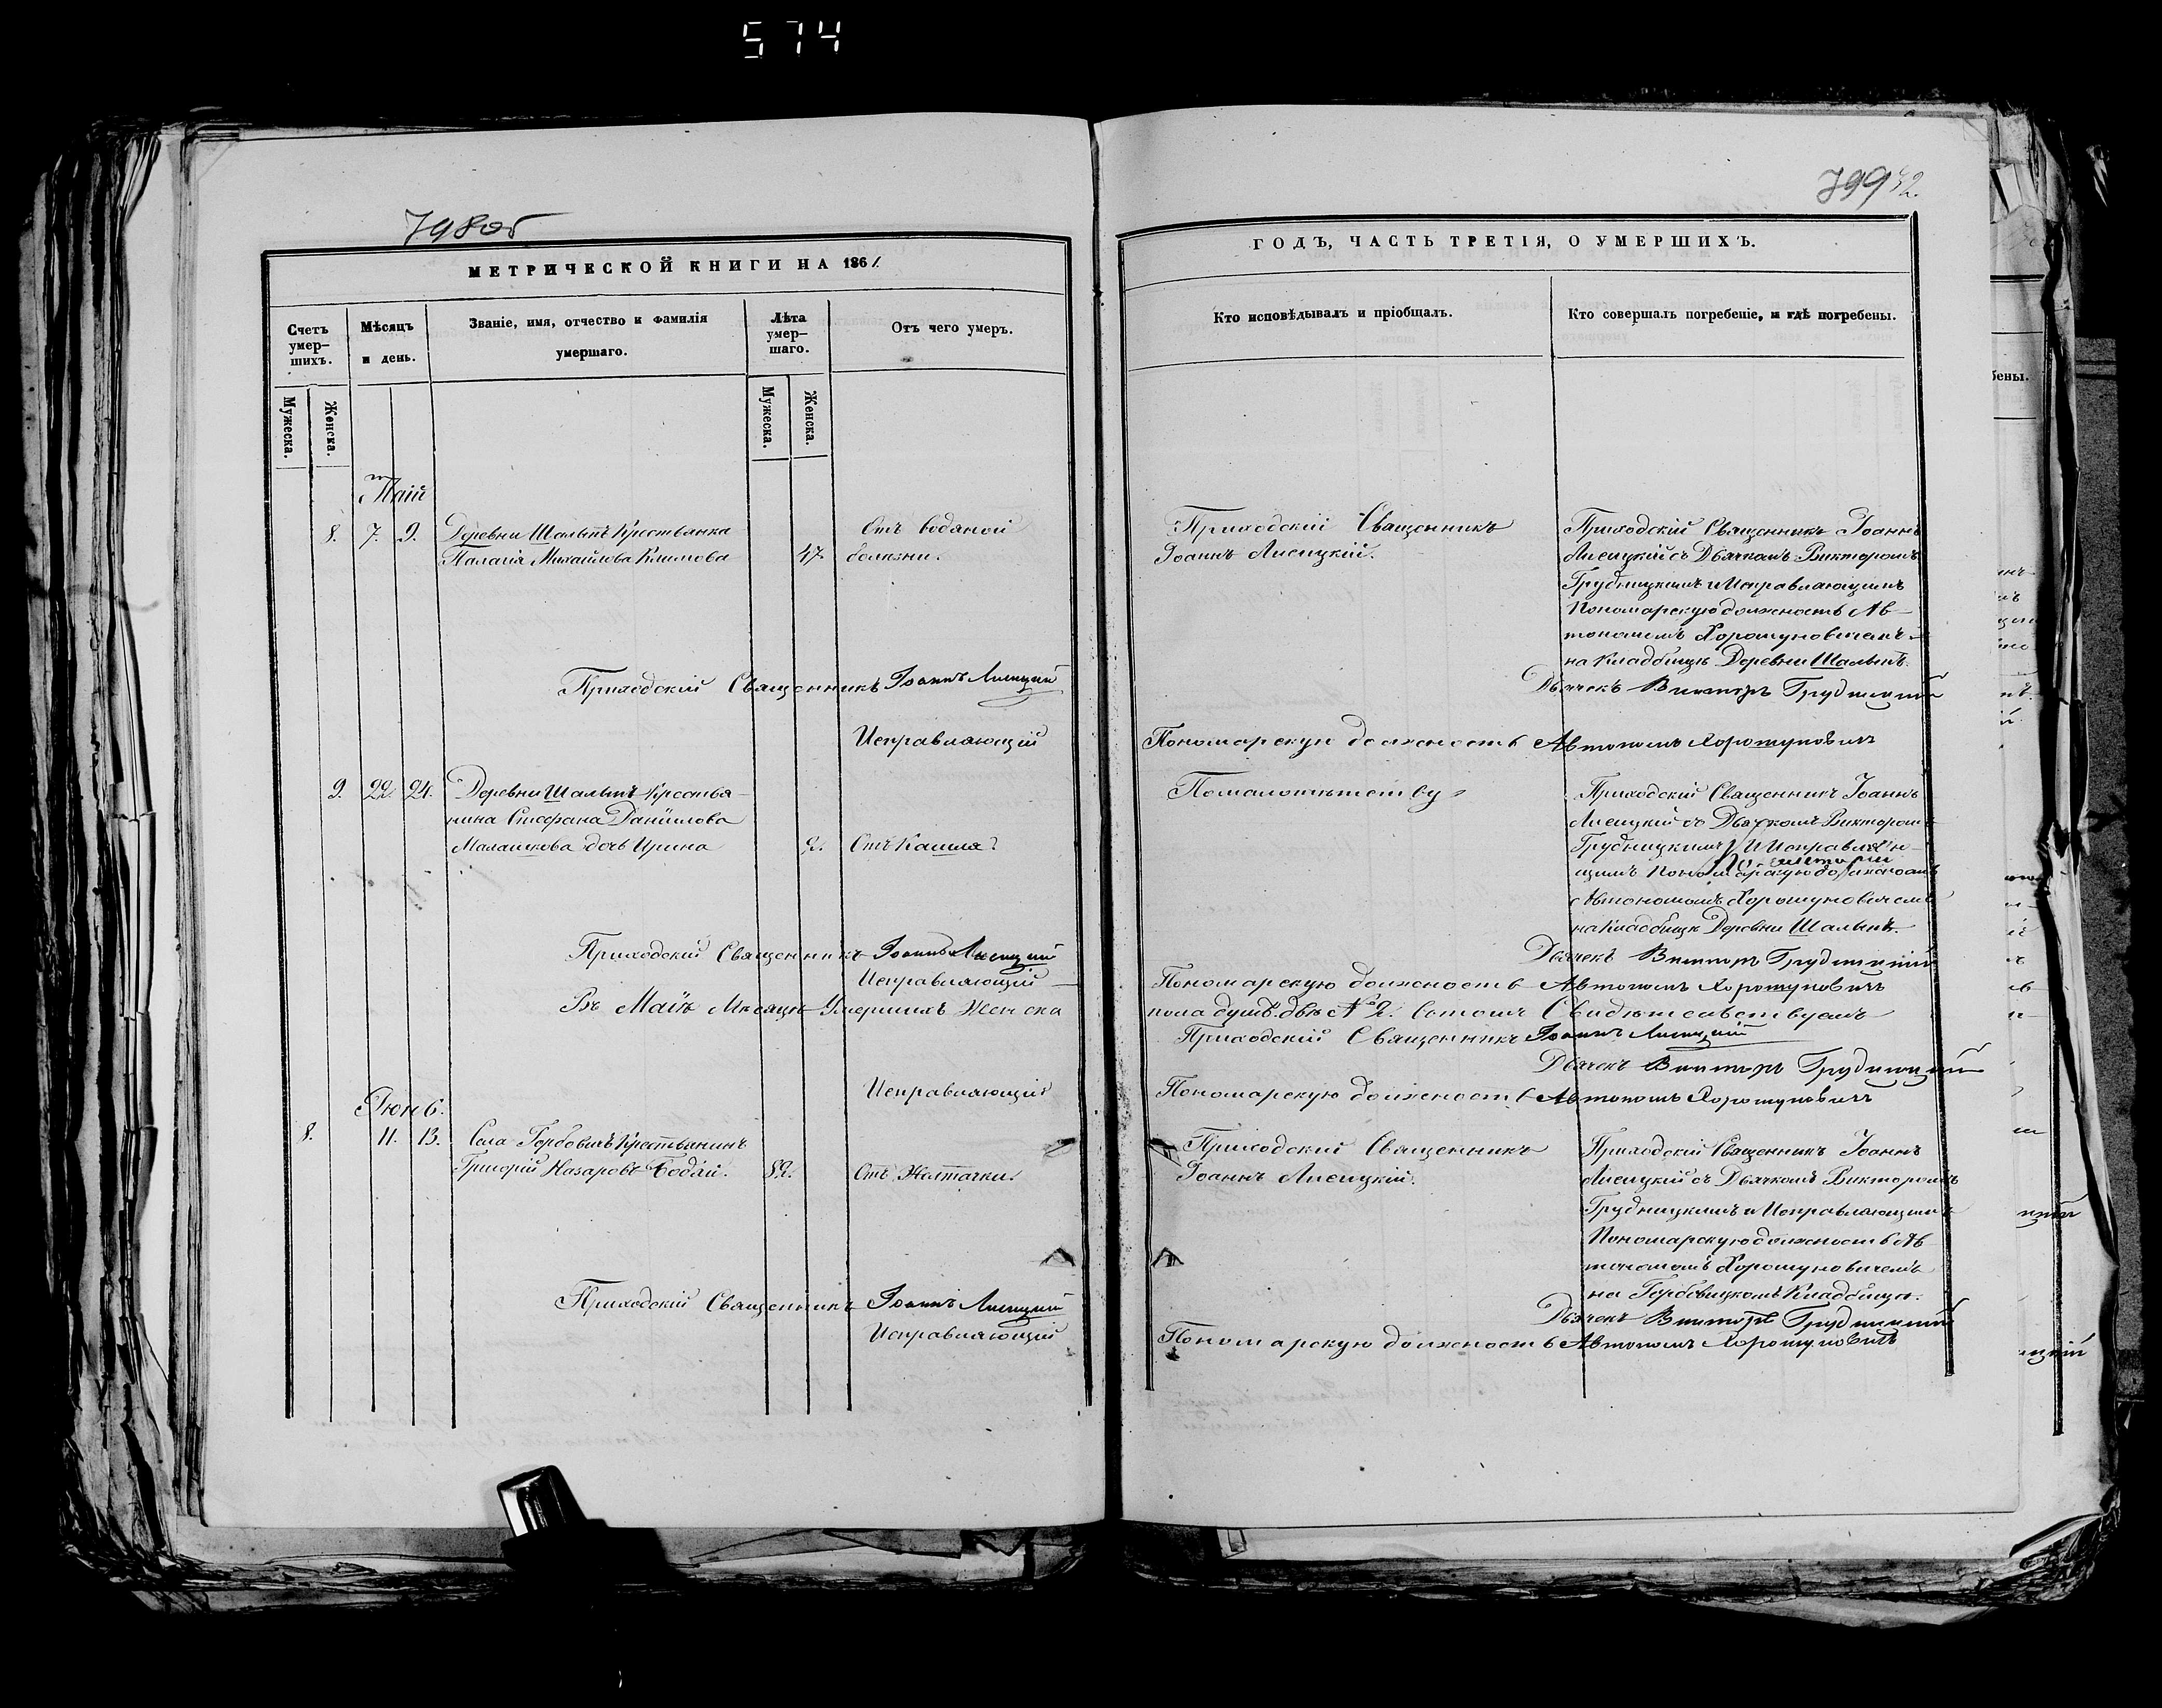 574
798об
799 42.
МЕТРИЧЕСКОЙ КНИГИ НА 1861.
ГОДЪ, ЧАСТЬ ТРЕТІЯ, О УМЕРШИХЪ.
Счетъ умер-шихъ.
Мѣсяцъ и день.
Званіе, имя, отчество и фамилія умершаго.
Лѣта умер-шаго.
Отъ чего умеръ.
Кто исповѣдывалъ и пріобщалъ.
Кто совершалъ погребеніе, и гдѣ погребены.
Мужеска.
Женска.
Мужеска.
Женска.
Маій
8. 7. 9. Деревни Шальнѣ Крестьянка
Палагія Михайлова Климова 47.
Отъ водяной
болѣзни.
Приходскій Священникъ
Іоаннъ Лисицкій.
Приходскій Священникъ Іоаннъ
Лисицкій съ Дьячкомъ Викторомъ
Грудницкимъ и Исправляющимъ
Пономарскую должность Ав-
тономомъ Хорошуновичемъ
на кладбищѣ Деревни Шальнѣ.
Приходскій Священникъ Іоаннъ Лисицкій
Дьячекъ Викторъ Грудницкій
Исправляющій Пономарскую должность Автономъ Хорошуновичъ
9. 22. 24. Деревни Шальнѣ Крестья-
нина Стефана Даніилова
Малашкова дочь Ирина 2. Отъ Кашля
Помалолѣтству
Приходскій Священникъ Іоаннъ
Лисицкій съ Дьячкомъ Викторомъ
Грудницкимъ И Исправляю-
щимъ Пономарскую должность
Автономомъ Хорошуновичемъ
на Кладбищѣ Деревни Шальнѣ.
Приходскій Священникъ Іоаннъ Лисицкій
Дьячекъ Викторъ Грудницкій
Исправляющій Пономарскую должность Автономъ Хорошуновичъ
Въ Маіѣ Мѣсяцѣ Умершихъ Женска пола душъ двѣ № 2. въ томъ Свидѣтельствуемъ
Приходскій Священникъ Іоаннъ Лисицкій
Дьячекъ Викторъ Грудницкій
Исправляющій Пономарскую должность Автономъ Хорошуновичъ
Іюнь.
8. 11. 13. Села Горбовичъ Крестьянинъ
Григорій Назаровъ Бодяй. 82. Отъ Желтачки.
Приходскій Священникъ
Іоаннъ Лисицкій.
Приходскій Священникъ Іоаннъ
Лисицкій съ Дьячкомъ Викторомъ
Грудницкимъ и Исправляющимъ
Пономарскую должность Ав-
тономомъ Хорошуновичемъ
на Горбовицкомъ Кладбищѣ.
Приходскій Священникъ Іоаннъ Лисицкій
Дьячекъ Викторъ Грудницкій
Исправляющій Пономарскую должность Автономъ Хорошуновичъ